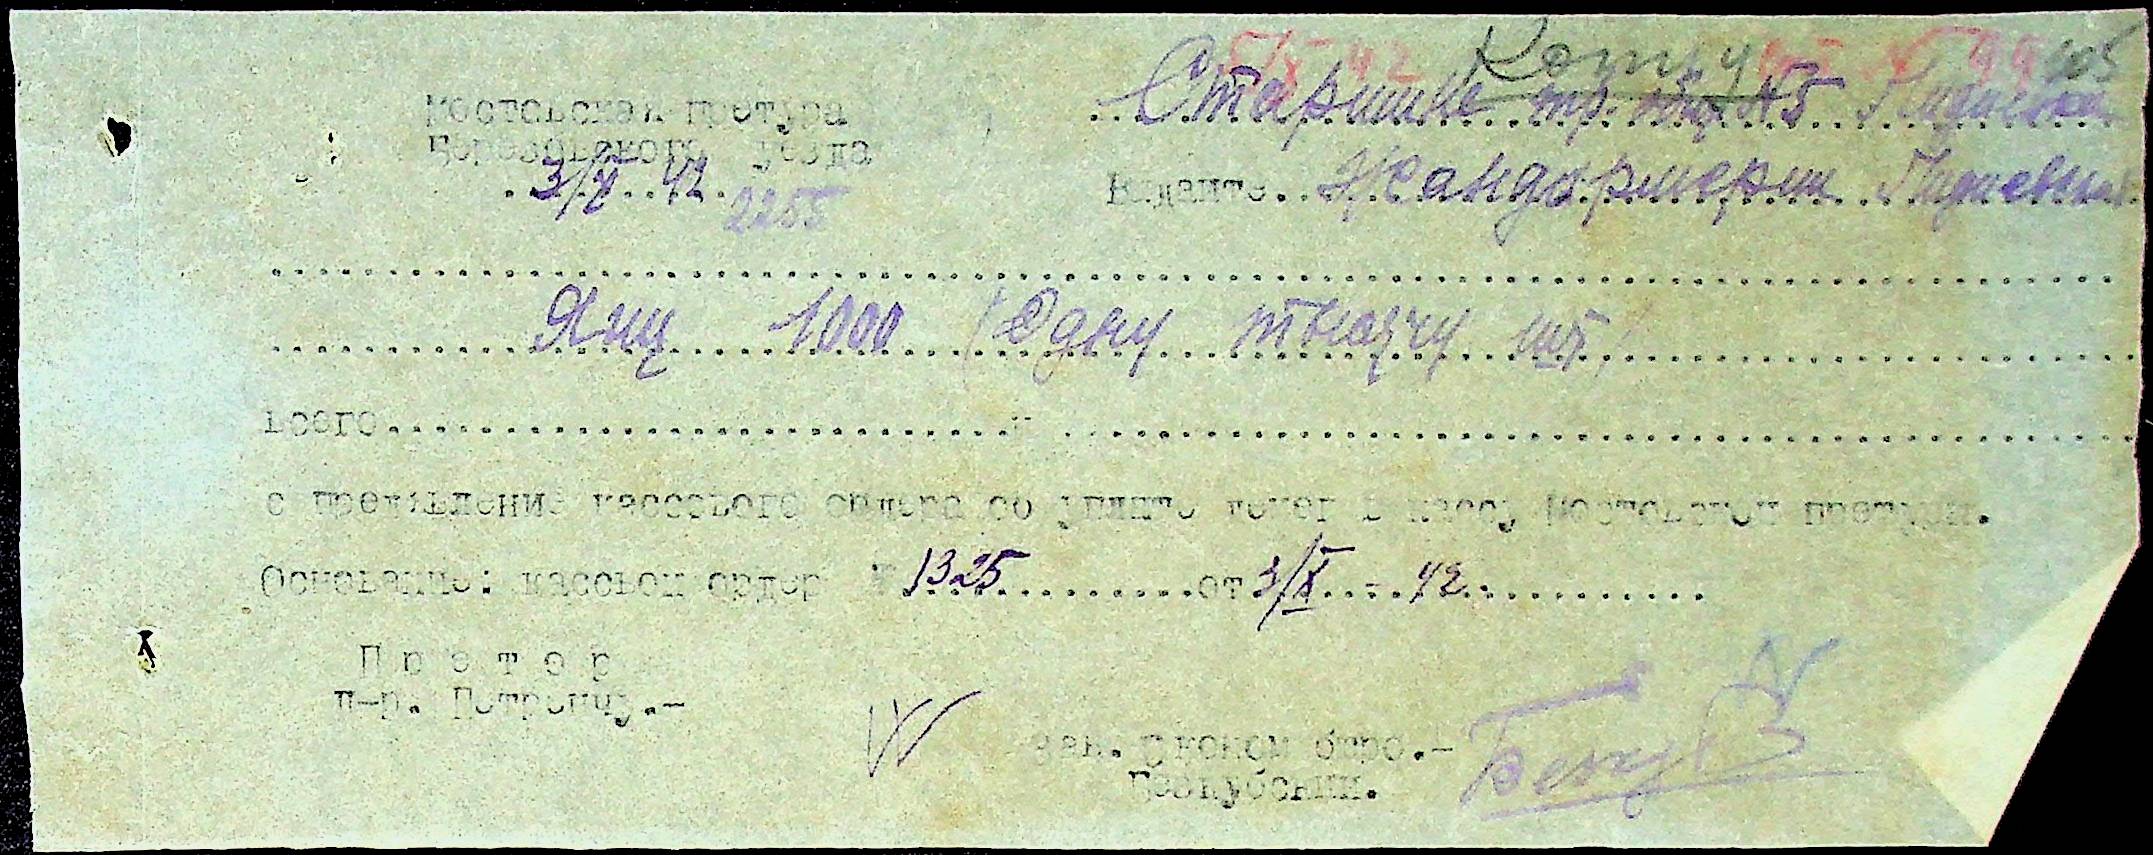 5/X 42 Копия 99 105
Мостовская претура
Березовского уезда
3/X 42
2255
Старшине тр. общ. №5
Выдайте Жандармерии
Яиц 1000 (Одну тысячу шт)
всего
с предъявление кассового ордера об уплате денег в кассу Мостовской претуры.
Основание: кассовой ордер № 1325 от 3/X - 42
Претор
п-р. Петренчу.-
Зав. Эконом отро.-
Безкубский.